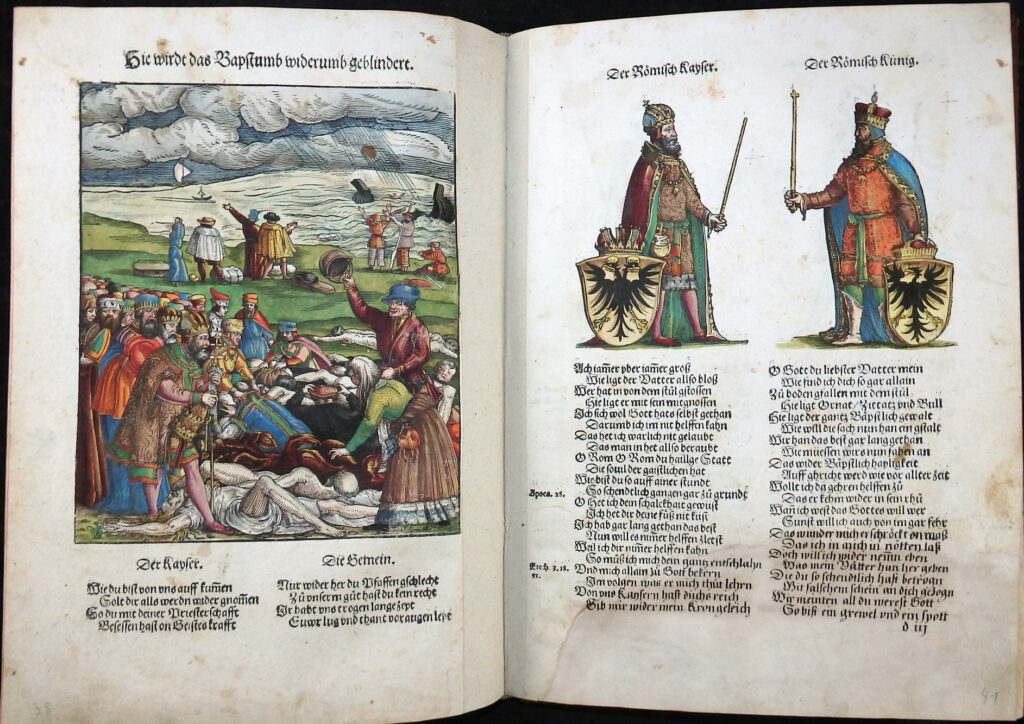 Hie wirdt das Bapstumb widerumb geblindert.
Der Kayser.
Wie du bist von uns auff kummen
Solt dir alls werdn wider gnommen
So du mit deiner Priesterschafft
Besessen hast on Geistes krafft
Die Gemein.
Nur wider her du Pfaffen gschlecht
Zu unserm gut hast du kein recht
Ir habt vns trogen lange zeyt
Ewr lug vnd thant vor augen leyt
38
Der Römisch Kayser.
Ach jamer vber jamer groß
Wie ligt der Vatter allso bloß
Wer hat in von dem stul gstossen
Hie ligt er mit sein mitgnossen
Ich sich wol Gott hats selbst gethan
Darumb ich im nit helffen kan
Das het ich warlich nit gelaubt
Das man in het also beraubt
O Rom O Rom du hailige Statt
Die souil der gaistlichen hat
Wie bist du so auff ainer stundt
Apoca. 18.
So schendtlich gangen gar zu grundt
O Het ich dein schalckhait gewist
Ich het dir deine füß nit kist
Ich hab gar lang gethan das best
Nun will es nimer helffen zlest
Weil ich dir nimer helffen kan
So muß ich mich dein gantz entschlahn
Vnd mich allain zu Gott bekern
Im volgen was er mich thut lehrn
Von vns Kaysern hast du dichs reich
Gib mir wider mein Kron gleich
Der Römisch Künig.
O Gott du liebster Vatter mein
Wie find ich dich so gar allain
Zu boden gfallen mit dem stul
Hie ligt Ornat / Zittatz vnd Bull
Hie ligt der gantz Bäpstlich gewalt
Wie will die sach nun han ein gstalt
Wir han das best gar lang gethan
Wie müessen wirs nun fahen an
Das wider Bäpstlich hayligkeit
Auff gbricht werd wie vor aller zeit
Wollt ich da gehren helffen zu
Das er kem wider in sein rhu
Wann ich west das Gottes will wer
Sunst will ich auch von im gar fehr
Das wunder mich erschröckt on maß
Das ich in auch in nötten laß
Doch will ich wider nemen eben
Was mein Vätter han her geben
Die du so schendtlich hast betrogn
Mit falschem schein an dich gezogn
Wir meinten all du werest Gott
So bist ein grewel vnd ein spott
d iij
41